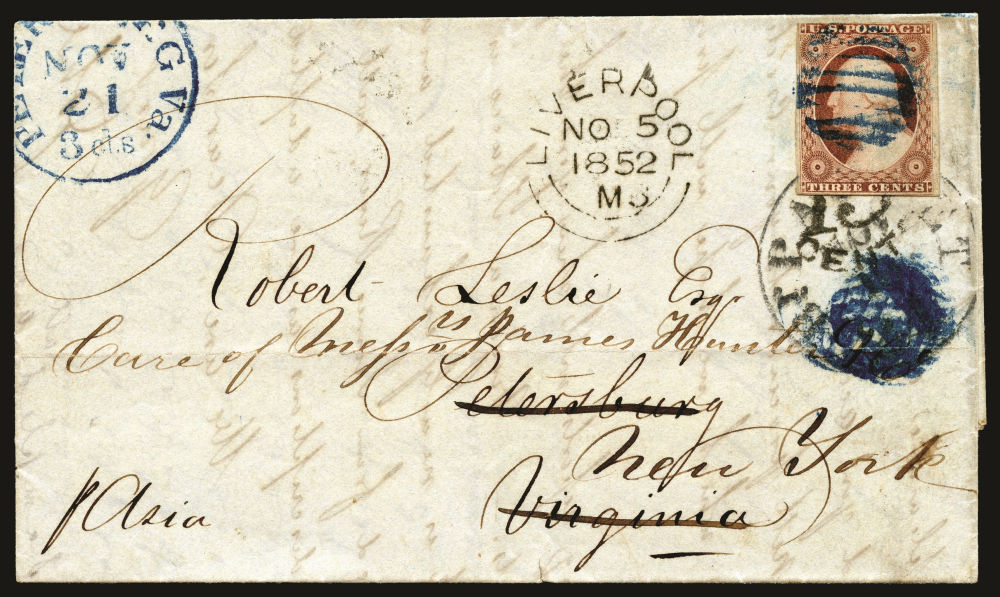 NOV
21
3 cts
LIVERPOOL
NO 5
1852
M3
U.S. POSTAGE
THREE CENTS
PAI
CENT
Robert Leslie Esqr
Care of Messrs James Hunter
Petersburg
New York
Virginia
p Asia